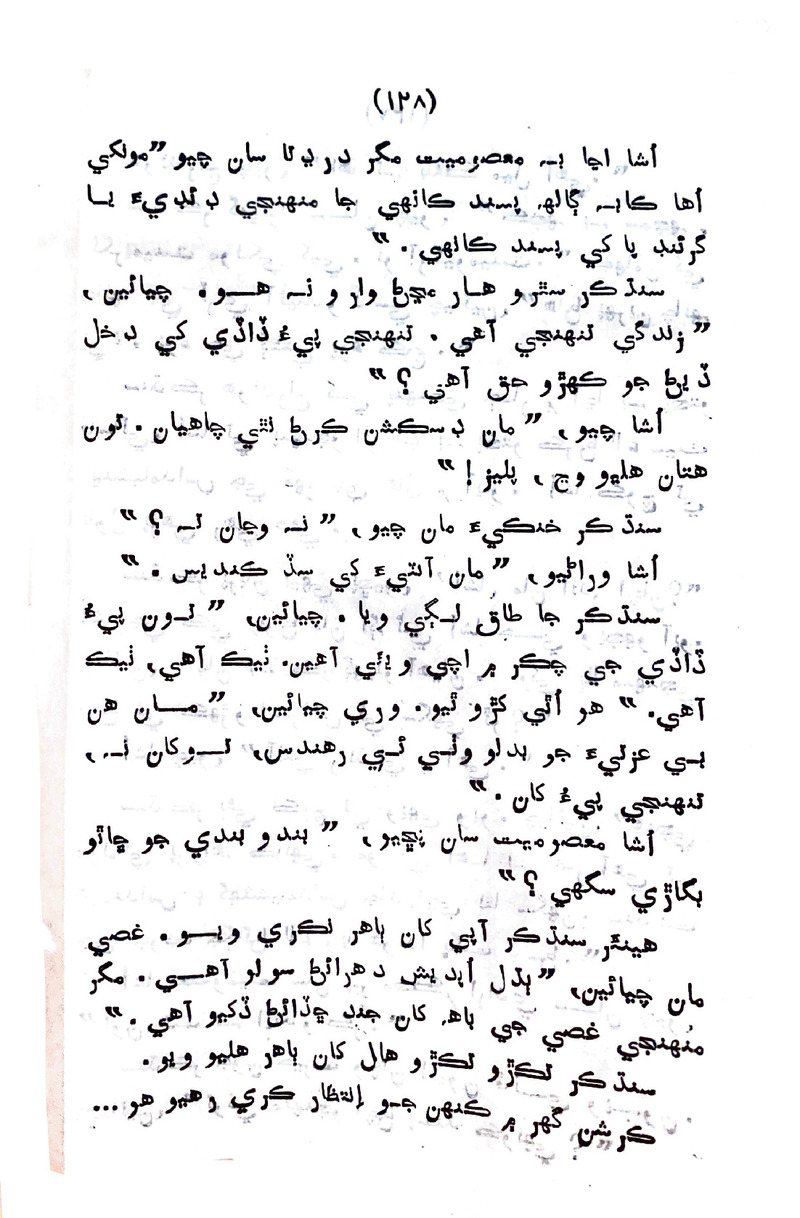 (١٢٨)
اُشا اڃا بہ معصوميت مگر درڍتا سان چيو ”مونکي
اُها ڪابہ ڳالھہ پسند ڪانهي جا منهنجي ڊئڊيءَ يا
گرئنڊ پا کي پسند ڪانهي. “
سنڌڪر سٿرو هار مڃڻ وارو نہ هو. چيائين،
”زندگي تنهنجي آهي. تنهنجي پيءُ ڏاڏي کي دخل
ڏيڻ جو ڪهڙو حق آهي؟ “
اُشا چيو، ”مان ڊسڪشن ڪرڻ نٿي چاهيان. تون
هتان هليو وڃ، پليز! “
سنڌڪر خنڪيءَ مان چيو، ”نہ وڃان تہ؟ “
اُشا وراڻيو، ”مان آنٽيءَ کي سڏ ڪنديس. “
سنڌڪر جا طاق لڳي ويا. چيائين، ”تون پيءُ
ڏاڏي جي چڪر ۾ اچي وئي آهين. ٺيڪ آهي، ٺيڪ
آهي. “ هو اُٿي کڙو ٿيو. وري چيائين، ”مان هن
بي عزتيءَ جو بدلو وٺي ئي رهندس، توکان نہ،
تنهنجي پيءُ کان. “
اُشا معصوميت سان پڇيو، ”بندو بندي جو ڇاٿو
بگاڙي سگهي؟ “
هينئر سنڌڪر آپي کان ٻاهر نڪري ويو. غصي
مان چيائين، ”ٻڌل اُپديش دهرائڻ سولو آهي. مگر
منهنجي غصي جي باھہ کان جند ڇڏائڻ ڏکيو آهي. “
سنڌڪر تڪڙو تڪڙو هال کان ٻاهر هليو ويو.
ڪرشن گهر ۾ ڪنهن جو اِنتظار ڪري رهيو هو...